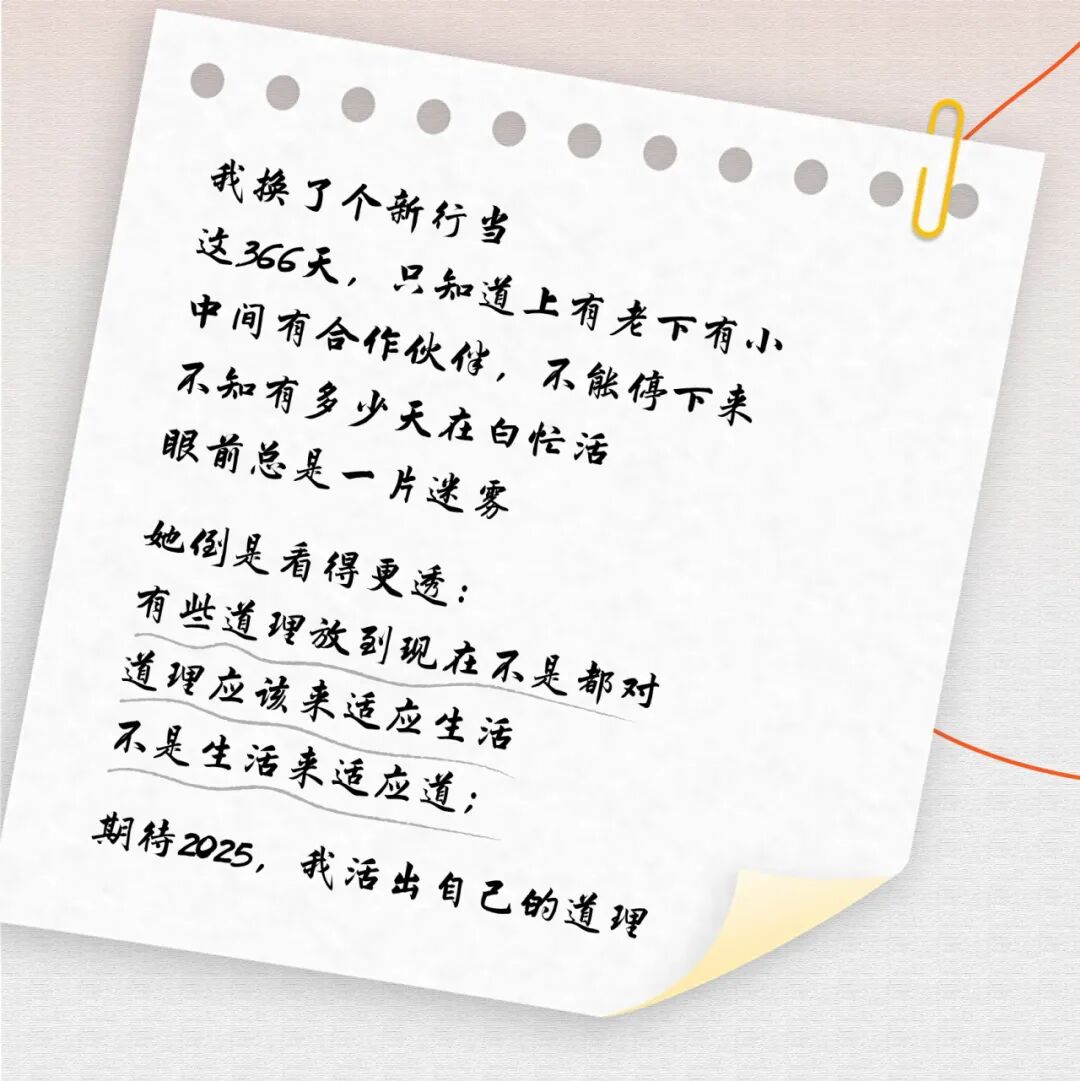 我换了个新行当
这366天，只知道上有老下有小
中间有合作伙伴，不能停下来
不知有多少天在白忙活
眼前总是一片迷雾
她倒是看得更透：
有些道理放到现在不是都对
道理应该来适应生活
不是生活来适应道；
期待2025，我活出自己的道理